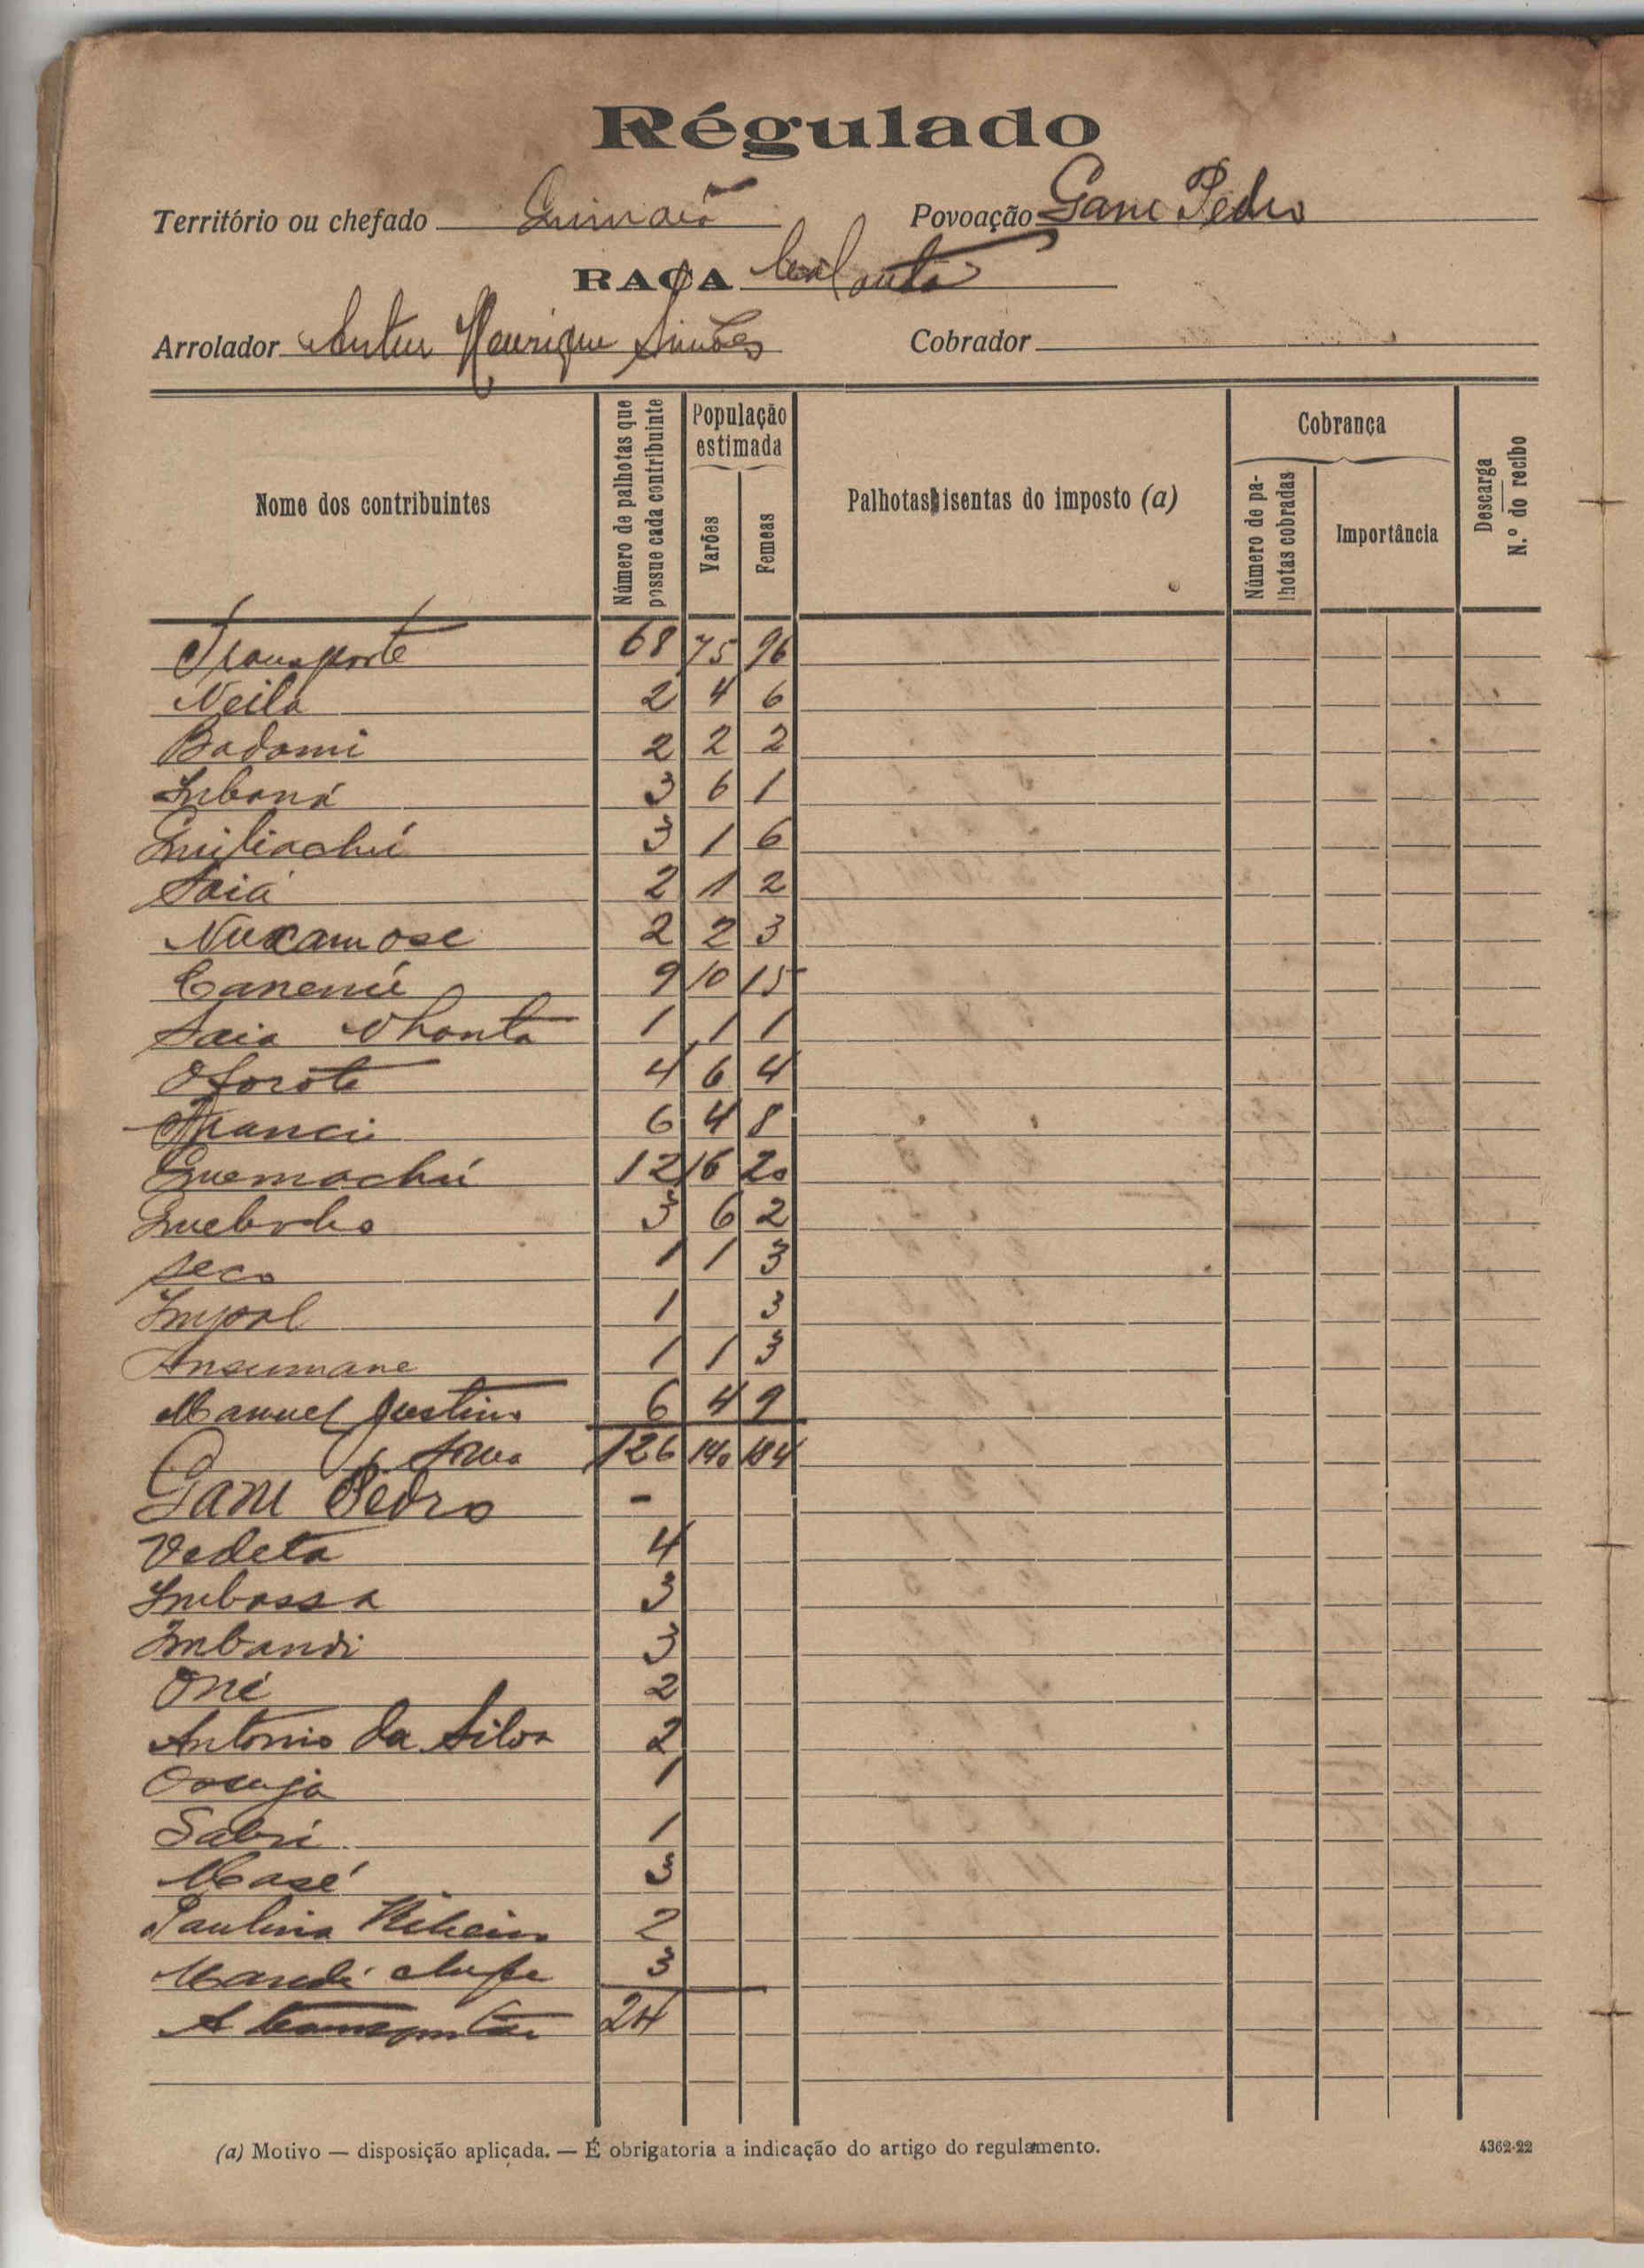 Régulado
Território ou chefado Povoação Gam Pedro
RAÇA
Arrolador Artur Henrique Simões Cobrador
Nome dos contribuintes
Número de palhotas que possue cada contribuinte
População estimada
Varões
Femeas
Palhotas isentas do imposto (a)
Cobrança
Número de palhotas cobradas
Importância
Descarga
N.º do recibo
Transporte 68 75 96
Neila 2 4 6
Badomi 2 2 2
Imboná 3 6 1
3 1 6
Saiá 2 1 2
2 2 3
9 10 15
Saia 1 1 1
4 6 4
6 4 8
12 16 20
3 6 2
Seco 1 1 3
1 3
Ansumane 1 1 3
Manuel Justino 6 4 9
Soma 126 140 184
Gam Pedro -
Vedeta 4
Imbassa 3
Imbandi 3
Oné 2
Antonio da Silva 2
1
Sabri 1
Masé 3
Paulina Ribeiro 2
3
A transportar 24
(a) Motivo — disposição aplicada. — É obrigatoria a indicação do artigo do regulamento.
4362-22